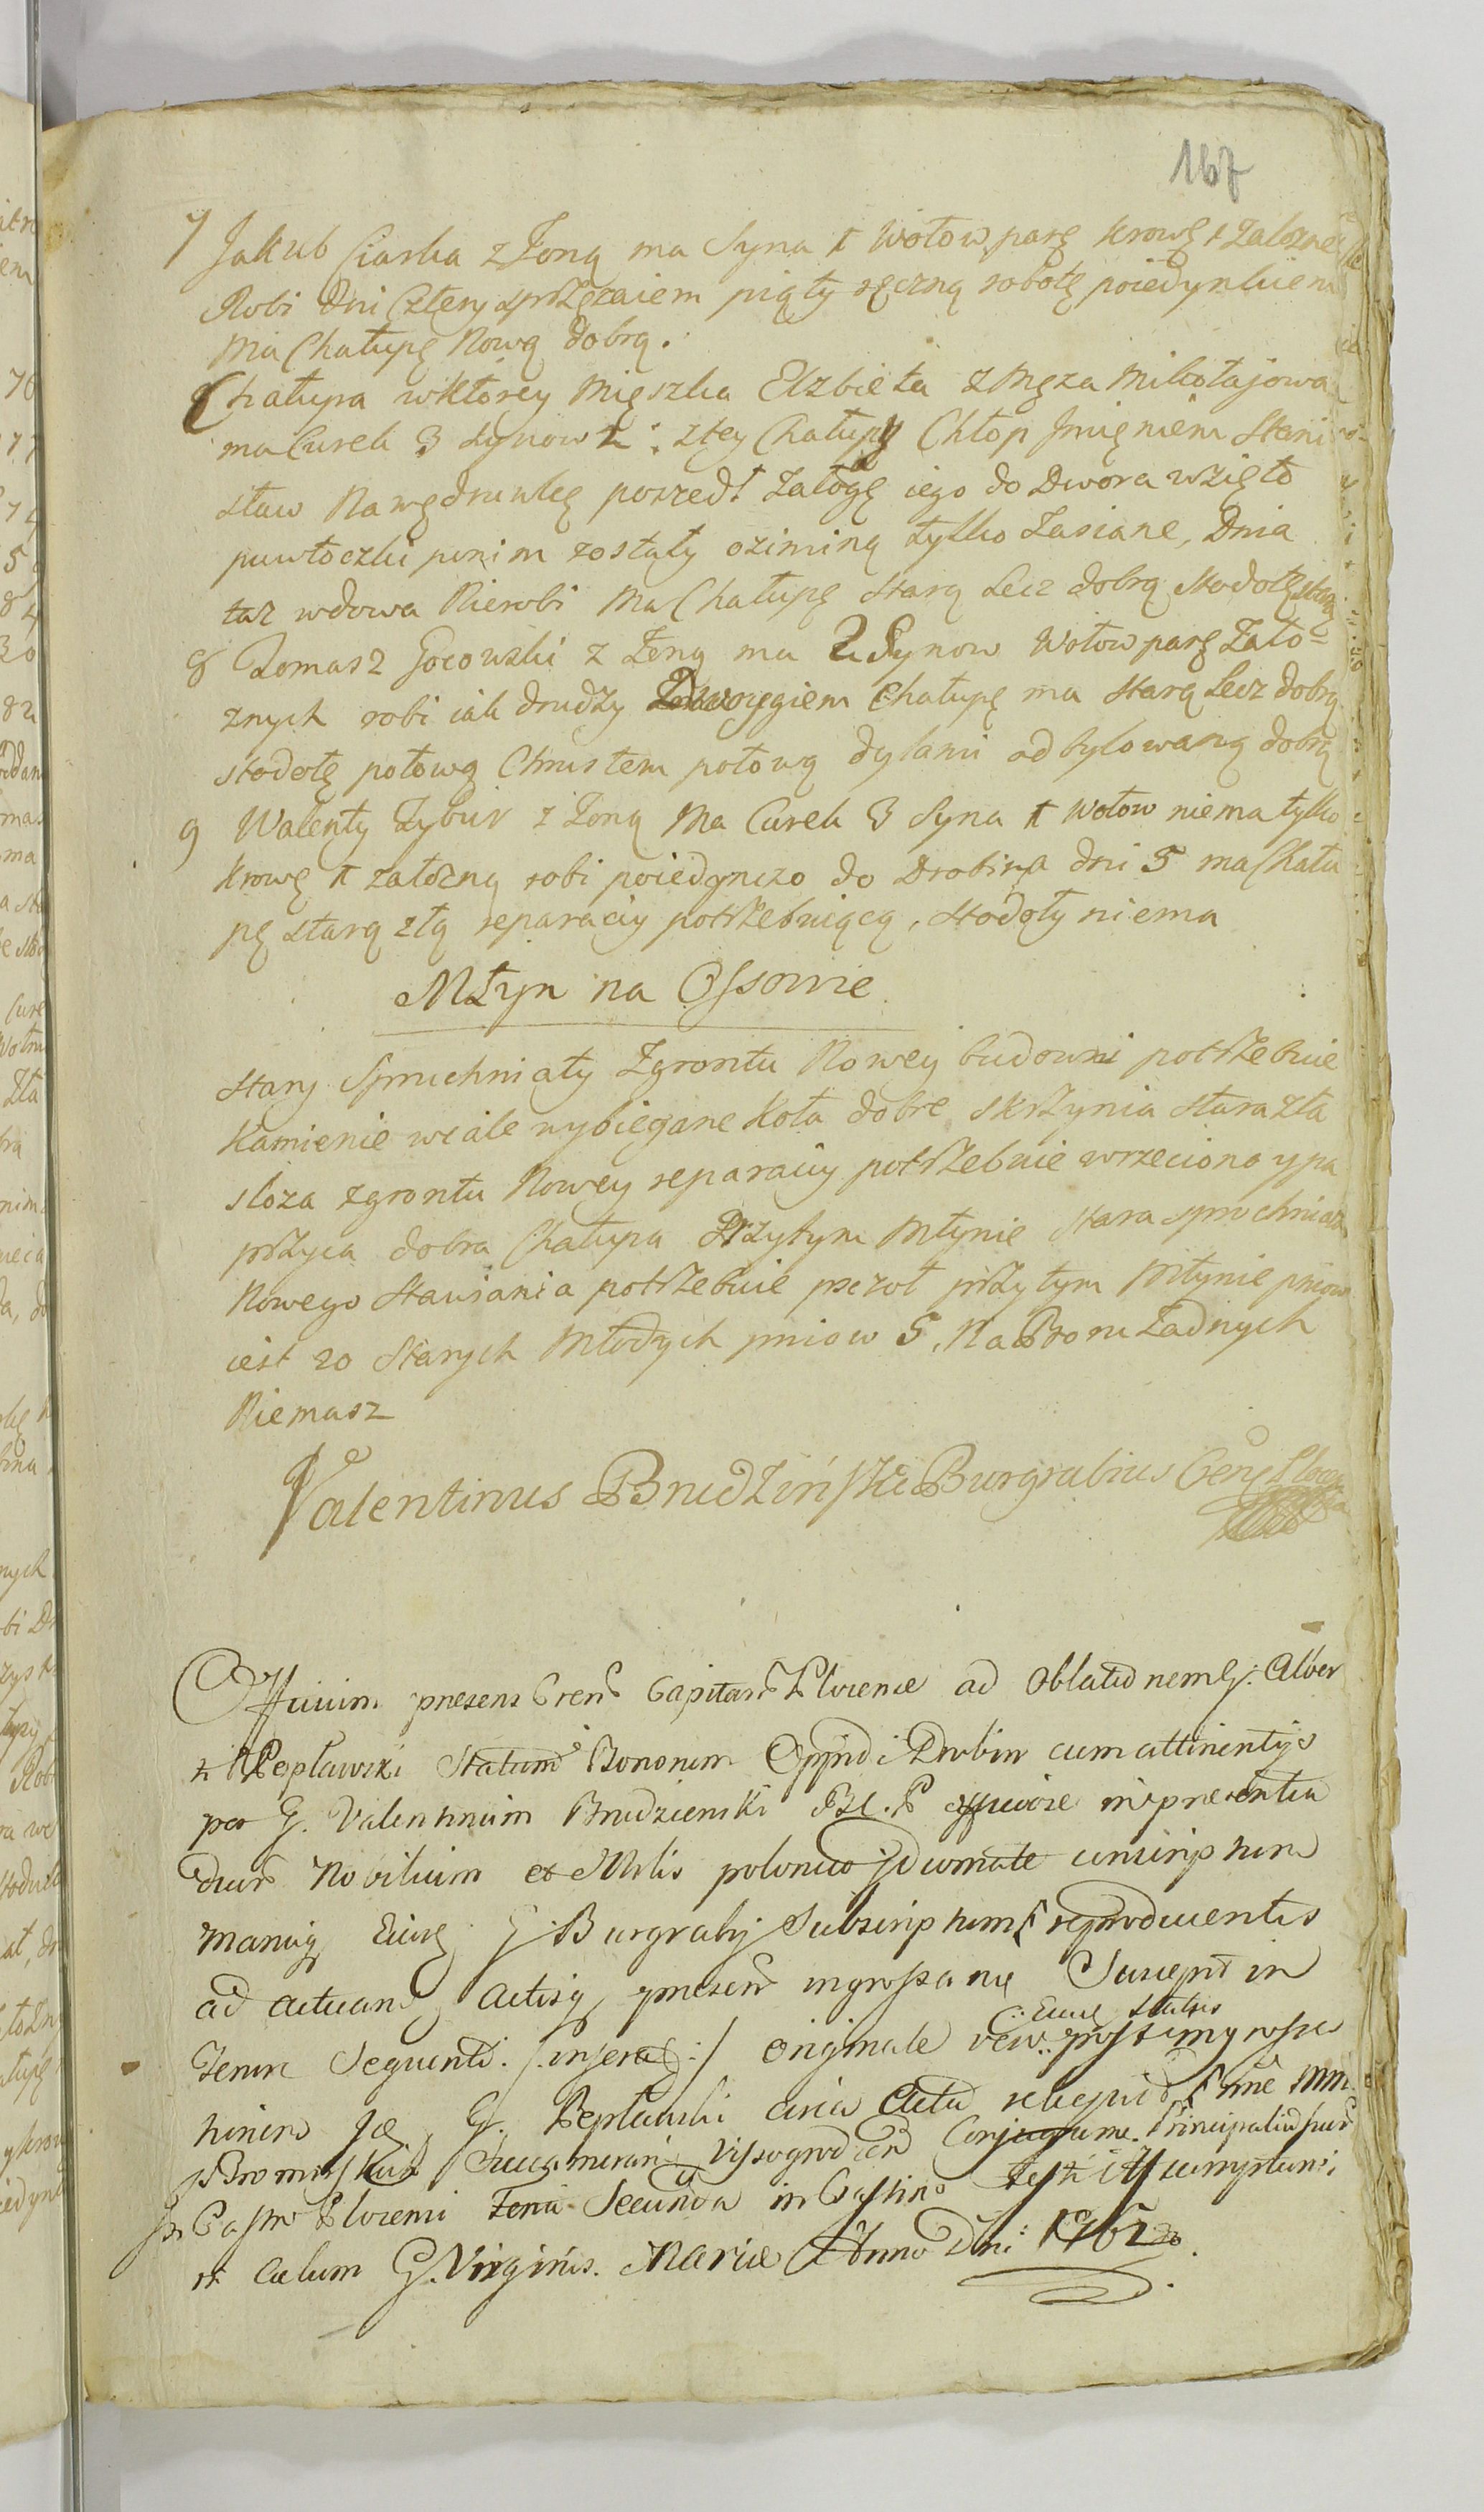 167
7 Jakub Ciarka z Zoną ma Syna 1 Wołow parę Krowę 1 Załozne
Robi dni Cztery zprzęzaiem piąty ręczną robotę poiedynkiem
Ma Chałupę Nową dobrą.
Chałupa wktorey Mięszka Elzbieta z Męza Mikołajowa
ma Curek 3 Synow 2: ztey Chałupy Chłop Jmięniem Stani
sław Na wędruwkę poszedł Załogę iego do Dwora wzięto
puwłoczki punim zostały oziminą tylko Zasiane, Dnia
taz wdowa Nierobi Ma Chałupę Starą Lecz dobrą Stodołę starą
8 Tomasz Gocowski z Zoną ma 2 Synow Wołow parę Zało=
znych robi iak drudzy Chałupę ma Starą Lecz dobrą
Stodołę połową Chrustem połową dylami odbylowaną dobrą
9 Walenty Zybur z Zoną Ma Curek 3 Syna 1 Wołow niema tylko
Krowę 1 załozną robi poiedynczo do Drobina dni 5 ma Chału
pę starą złą reparaciy potrzebuiącą, Stodoły niema
Młyn na Ossowie
Stary Spruchniały Zgrontu Nowey budowni potrzebuie
Kamienie wcale wybiegane Koła dobre skrzynia stara zła
sloza zgrontu Nowey reparaciy potrzebuie wrzeciono y pa
przyca dobra Chałupa Przytym Młynie stara spruchniała
Nowego Stawiania potrzebuie pszczoł przytym Młynie pniow
iest 20 Starych Młodych pniow 5, Na Boru Zadnych
Niemasz
Valentinus Brudzinski Burgrabius
Officium presens Capitan Plocense ad Oblatio nem G: Alber
ti Pepławski Statum Bonorum Oppidi Drobin cum attinentijs
per G. Valentinum Brudzienski officiose in presentia
duor Nobilium et Mlis polonico Idiomate conscriptum
manuq Eius G Burgrabij Subscriptum reproducentis
ad actuand Actisq presen ingrossan Suscepit in
Tenor Sequenti: /:inserat:/ originale vero :Eius Status: post ingrossa
G. Pepławski circa Acta
Succamerari Vissogrod
In Castro Plocensi Feria Secunda in Crastino Festi Assumptioni
in Cælum G. Virginis Mariæ Anno Dni: 1762do.